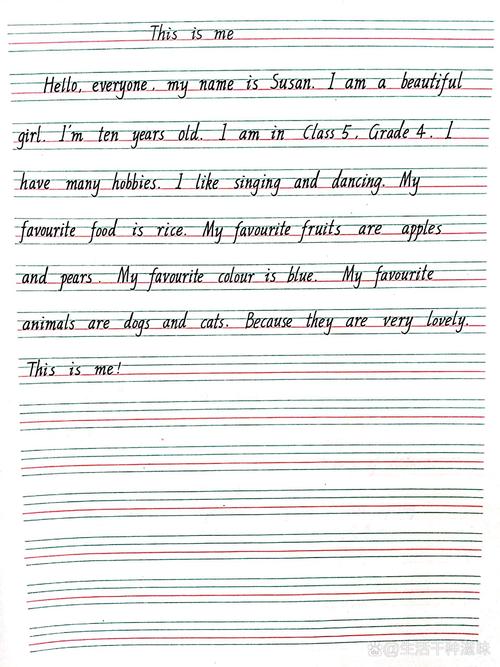 This is me
Hello, everyone, my name is Susan. I am a beautiful
girl. I'm ten years old. I am in Class 5, Grade 4. I
have many hobbies. I like singing and dancing. My
favourite food is rice. My favourite fruits are apples
and pears. My favourite colour is blue. My favourite
animals are dogs and cats. Because they are very lovely.
This is me!
@生活千种滋味